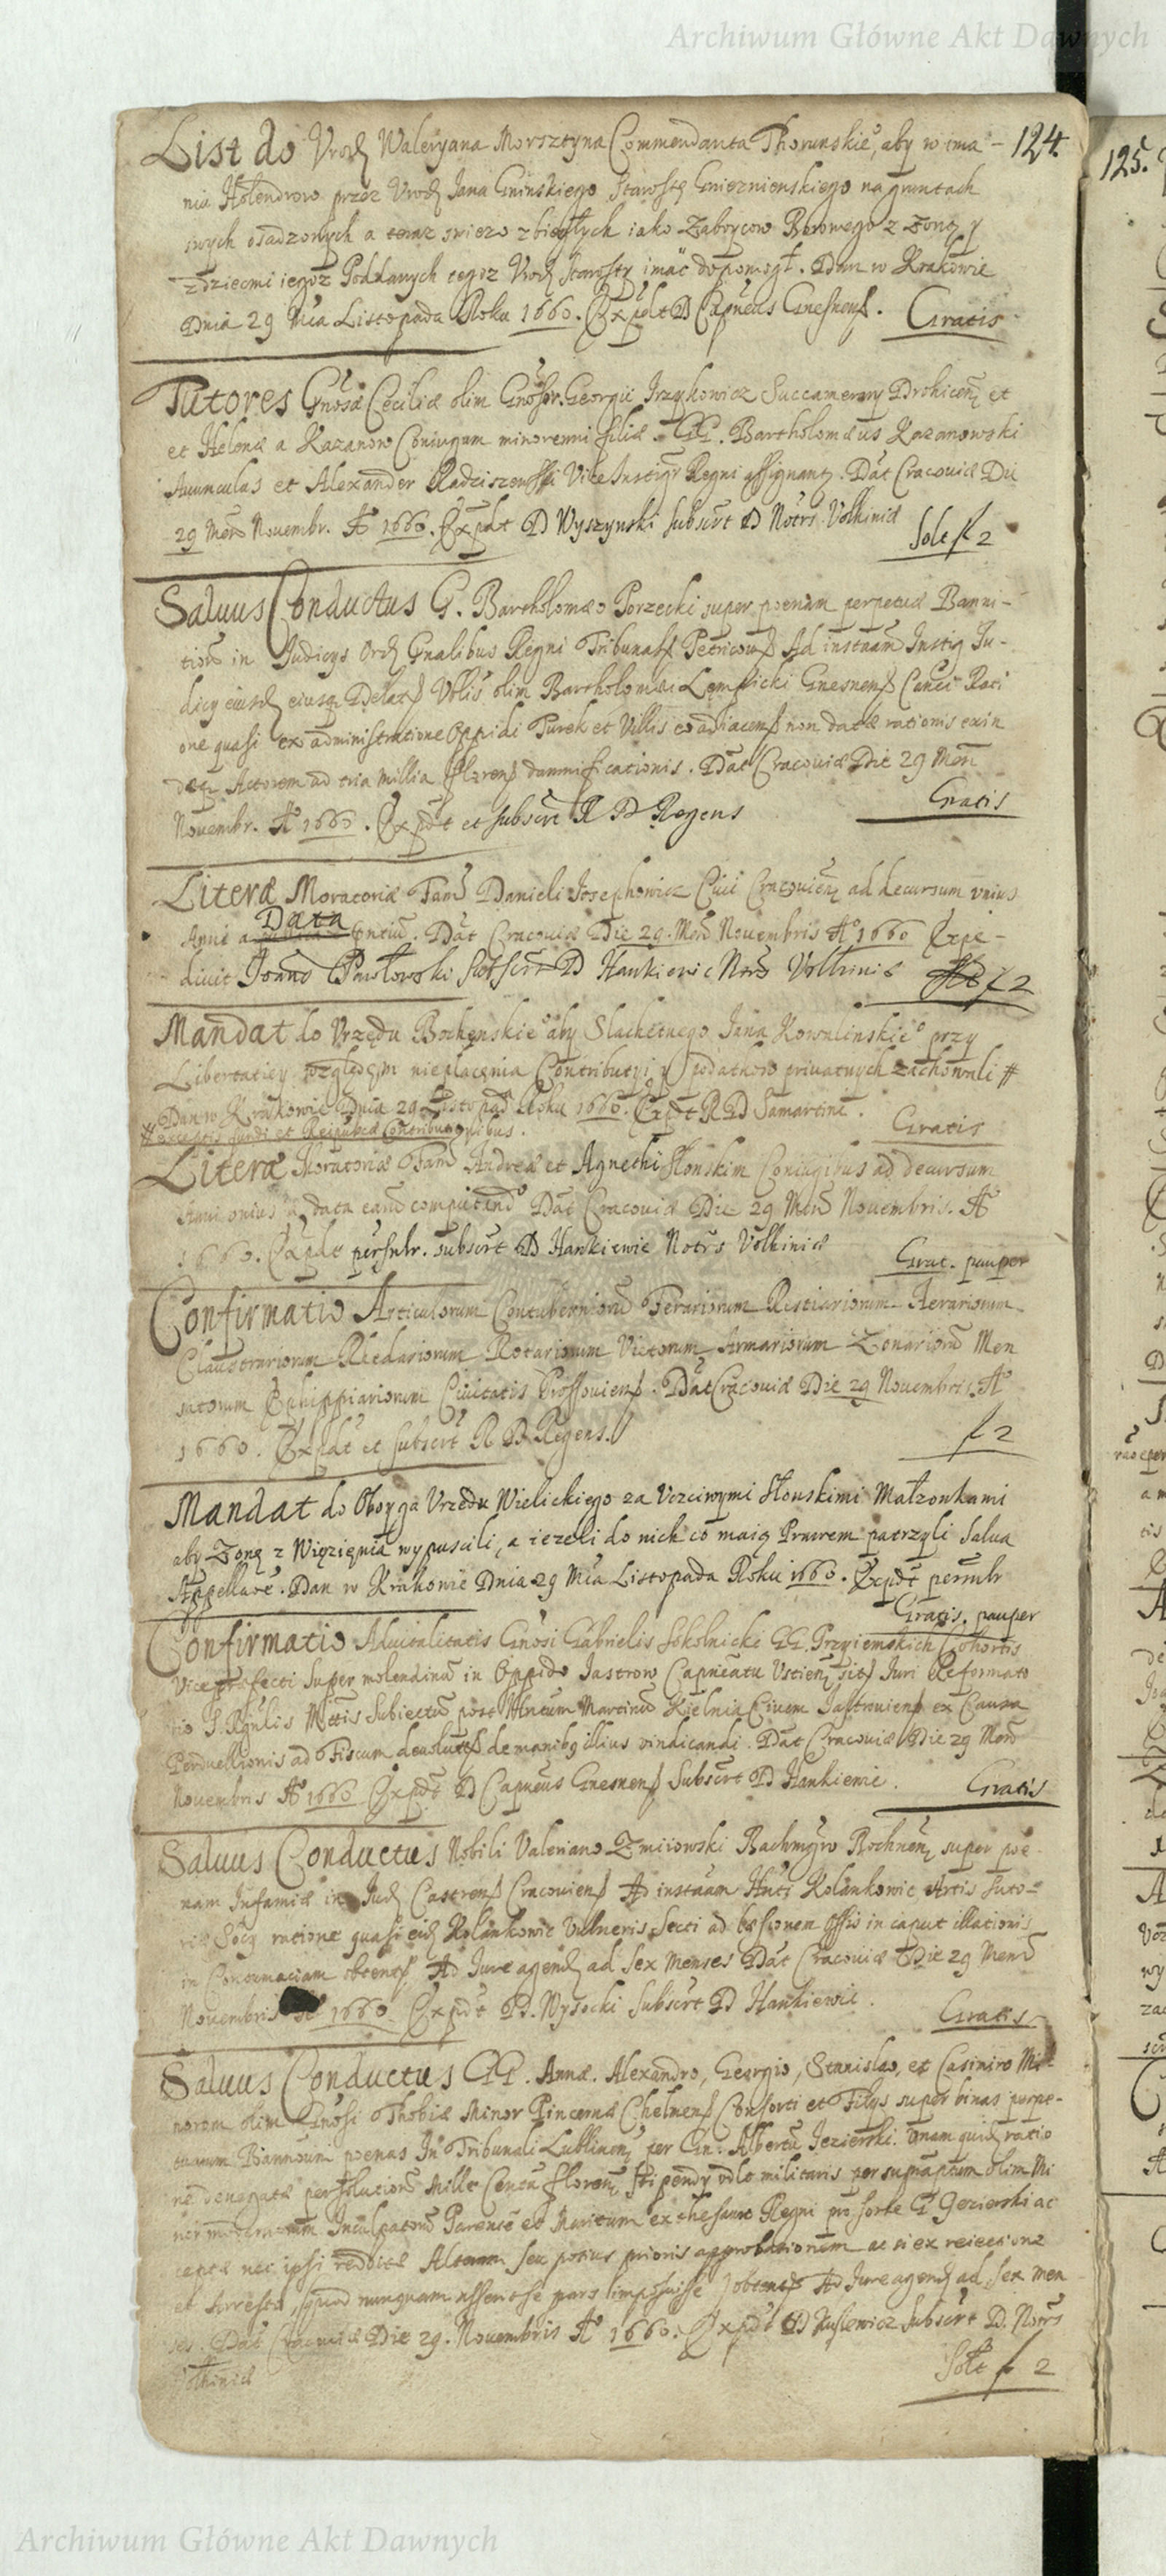 Archiwum Główne Akt Dawnych
124.
125.
List do Urod. Waleryana Morsztyna Commendanta Thorunskie°, aby w ima-
niu Holendrow przez Urod. Jana Gninskiego Starostę Gnieznienskiego na gruntach
swych osadzonych a teraz swiezo zbiegłych iako Zaboycow Borowego z Zoną y
z dziecmi iegoz Poddanych tegoz Urod. Starosty imać dopomogł. Dan w Krakowie
Dnia 29 Mca Listopada Roku 1660. Expdt D Capneus Gnesnens. Gratis
Tutores Gnosæ Ceciliæ olim Gnosor. Georgii Irzykowicz Succamerary Drohicen. et
et Helenæ a Kazanow Coniugum minorenni filiæ. GG. Bartholomæus Kazanowski
Avunculus et Alexander Radziszewski Vice Instigr Regni assignant. Dat Cracoviæ Die
29 Mens Novembr. A° 1660. Expdt D Wyszynski subscrt D Notrs Volhiniæ
Solt f 2
Salvus Conductus G. Bartholomæo Porzecki super poenam perpetuæ Banni-
tionis in Judicys Ord. Gnalibus Regni Tribunals Petricovs Ad instaam Instig Ju-
dicy eiusd. eiusq Delats Vblis olim Bartholomæi Lempicki Gnesnens Canci Rati
one quasi ex administratione Oppidi Turek et Villis eo adiacens non datæ rationis exin
deq Actorem ad tria millia florens damnificationis. Dat Cracoviæ Die 29 Mens
Novembr. A° 1660. Expdt et subscrt R D Regens
Gratis
Literæ Moratoriæ Fam Danieli Josephowicz Civi Cracovien. ad decursum unius
Data
Anni a Dat Cracoviæ Die 29. Mens Novembris A° 1660 Expe-
divit Joannes Pawłowski Subscrt D Hankiewic Notrs Volhiniæ f 2
Mandat do Urzędu Bochenskie° aby Slachetnego Jana Kowalinskie° przy
Libertatiey względem niepłacenia Contributyi y podatkow privatnych zachowali #
Dan w Krakowie Dnia 29 Listopada Roku 1660. Expdt R D Samartini.
# exceptis fundi et Reipubcæ Contributionibus.
Gratis
Literæ Moratoriæ Fam Andreæ et Agnechi Słonskim Coniugibus ad decursum
Anni unius a data earum computando Dat Cracoviæ Die 29 Mens Novembris. A°
1660. Expdt persnlr. subscrt D Hankiewic Notrs Volhiniæ
Grat. pauper
Confirmatio Articulorum Contubernioru Ferariorum Restiariorum Aerariorum
Claustrariorum Rhedariorum Rotariorum Vietorum Armariorum Zonarioru Men
satorum Ephippiariorum Civitatis Prossoviens. Dat Cracoviæ Die 29 Novembris. A°
1660. Expdt et subscrt R D Regens.
f 2
Mandat do Oboyga Urzędu Wielickiego za Uczciwymi Słonskimi Małzonkami
aby Zonę z Więzięnia wypuscili, a iezeli do nich co maią Prawem patrzyli Salva
Appellave. Dan w Krakowie Dnia 29 Mca Listopada Roku 1660. Expdt persnlr
Gratis. pauper
Confirmatio Advitalitatis Gnosi Gabrielis Sokolnicki GG. Przyiemskich Cohortis
Viceprefecti super molendinu in Oppido Jastrow Capneatu Ustien. sits Juri Reformato
rio S. Rgulis Mttis subiectu post Martinu Kielnia Civem Jastroviens ex Causa
Perduellionis ad Fiscum devoluts de manibq illius vindicandi. Dat Cracoviæ Die 29 Mens
Novembris A° 1660 Expdt D Capneus Gnesnens Subscrt D Hankiewic.
Gratis
Salvus Conductus Nobili Valeriano Zmiiowski Bachmgro Bochnen. super poe
nam Infamiæ in Jud. Castrens Cracoviens Ad instaam Hnti Kolankowic Artis Suto-
riæ Socy ratione quasi eid. Kolankowic Vulneris secti ad læsionem Ossis in caput illationis
in Contumaciam obtents Ad Jure agend. ad sex Menses Dat Cracoviæ Die 29 Mens
Novembris A° 1660. Expdt D. Wysocki Subscrt D Hankiewic.
Gratis
Salvus Conductus GG. Annæ. Alexandro, Georgio, Stanislao, et Casimiro Mi-
norom olim Gnosi Thobiæ Minor Pincernæ Chelmens Consorti et Filys super binas perpe-
tuarum Bannoum poenas In Tribunali Lublinen. per Gn. Albertu Jezierski. Unam quid. ratio
ne denegatæ persolutionis Mille Centu floren. stipendy vdlt militaris per supratum olim Mi
nor Inculpatoru Parente et Maritum ex thesauro Regni pro sorte G Gezierski ac
ceptæ nec ipsi redditæ Alteram seu potius prioris approbationem ac si ex reiectione
et Arresti, quod nunquam assentse pars imposuisse obtents Ad Jure agend. ad sex men
ses. Dat Cracoviæ Die 29. Novembris A° 1660. Expdt D Kuslewicz Subscrt D. Notrs
Volhiniæ
Solt f 2
Archiwum Główne Akt Dawnych